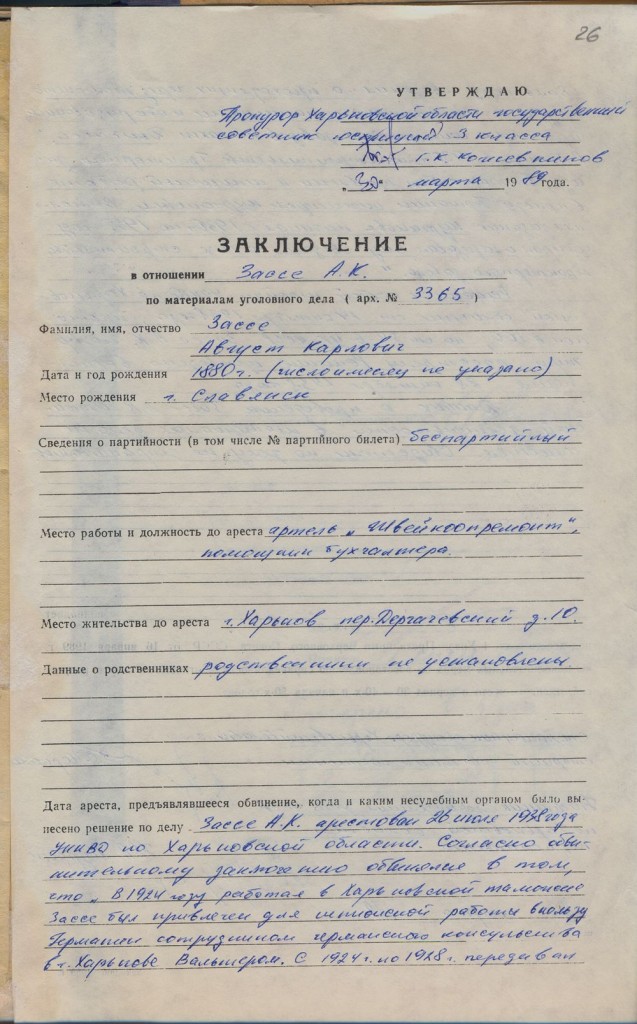 26
УТВЕРЖДАЮ
Прокурор Харьковской области государственный
советник юстиции 3 класса
Г.К. Кожевников
„30" марта 1989 года.
ЗАКЛЮЧЕНИЕ
в отношении Зассе А.К.
по материалам уголовного дела ( арх. № 3365 )
Фамилия, имя, отчество Зассе
Август Карлович
Дата и год рождения 1880 г. (число и месяц не указано)
Место рождения г. Славянск
Сведения о партийности (в том числе № партийного билета) беспартийный
Место работы и должность до ареста артель „Швейкоопремонт",
помощник бухгалтера.
Место жительства до ареста г. Харьков пер. Дергачевский д. 10.
Данные о родственниках родственники не установлены
Дата ареста, предъявлявшееся обвинение, когда и каким несудебным органом было вы-
несено решение по делу Зассе А.К. арестован 26 июля 1938 года
УНКВД по Харьковской области. Согласно обви-
нительному заключению обвинялся в том,
что „В 1924 году работая в Харьковской таможне
Зассе был привлечен для шпионской работы в пользу
Германии сотрудником германского консульства
в г. Харькове Вальтером. С 1924 г. по 1928 г. передавал